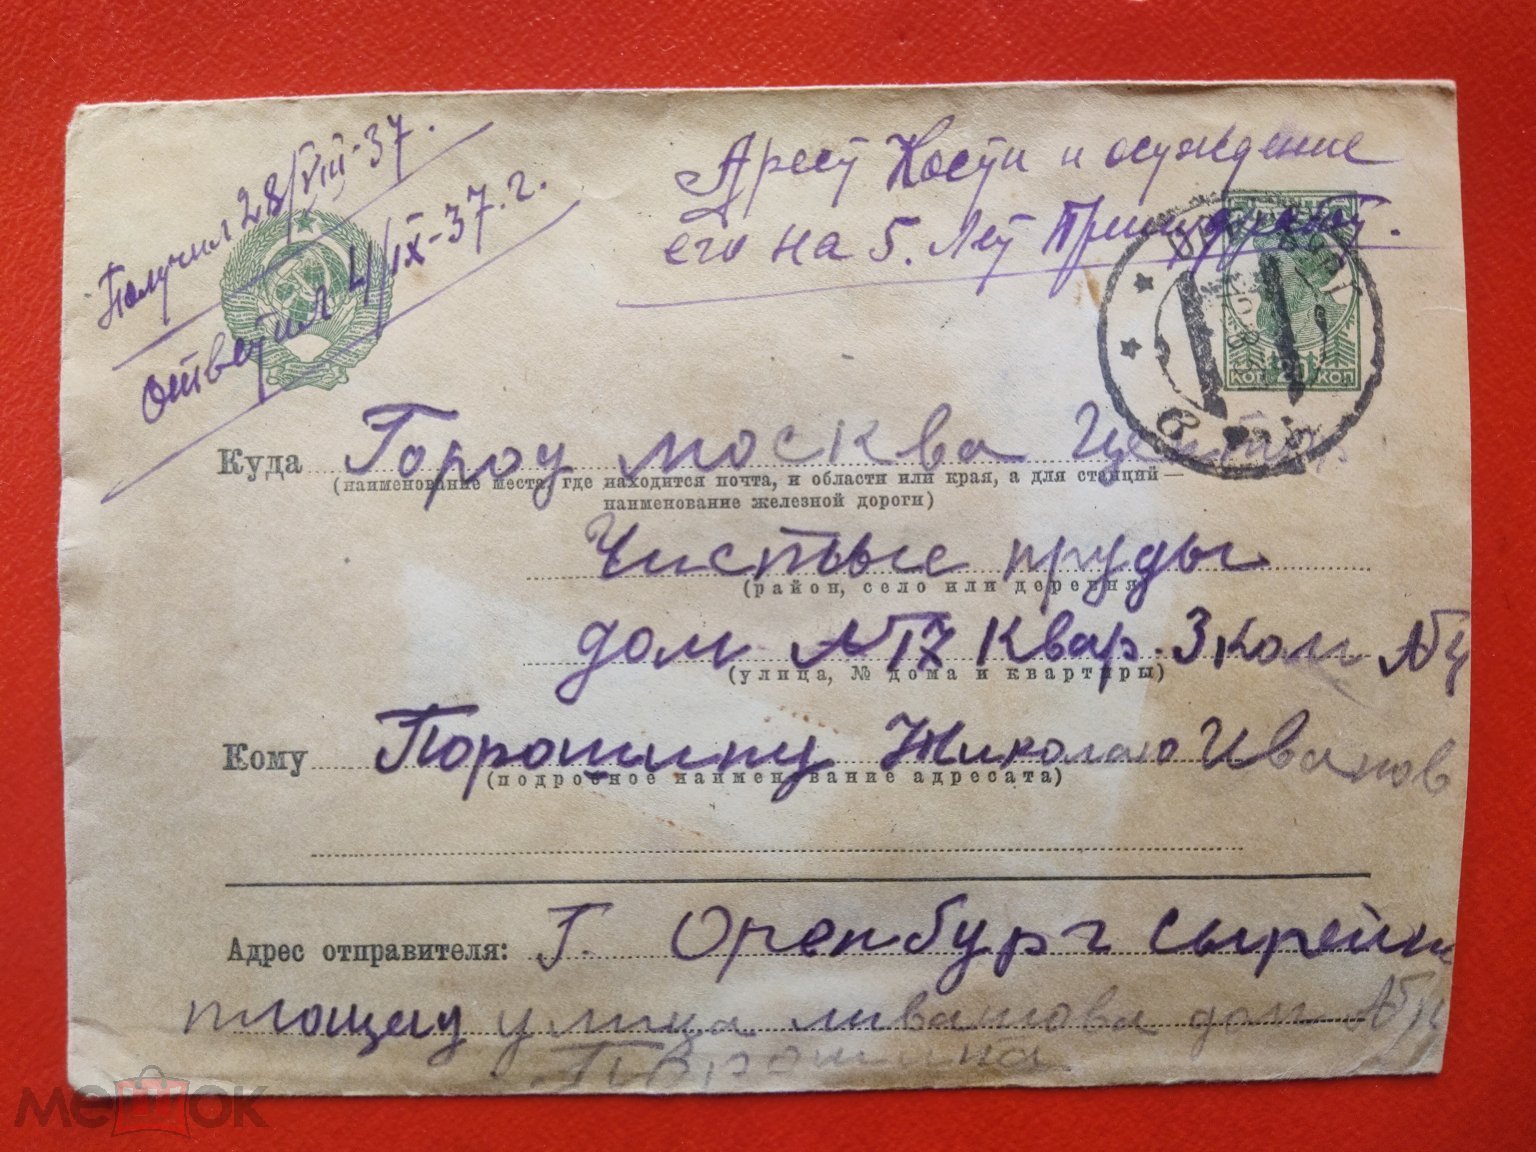 Получил 28/VIII-37.
Ответил 4/IX-37.г.
Арест Кости и осуждение
его на 5. лет Принудработ.
20 КОП КОП
Куда Город москва Центр
(наименование места, где находится почта, и области или края, а для станций—
наименование железной дороги)
Чистые пруды
(район, село или деревня)
дом №17 Квар. 3 Ком №
(улица, № дома и квартиры)
Кому Порошину Николаю Иванов
(подробное наименование адресата)
Адрес отправителя: Г. Оренбург
площад улица ливашова дом №
Порошина
мешок